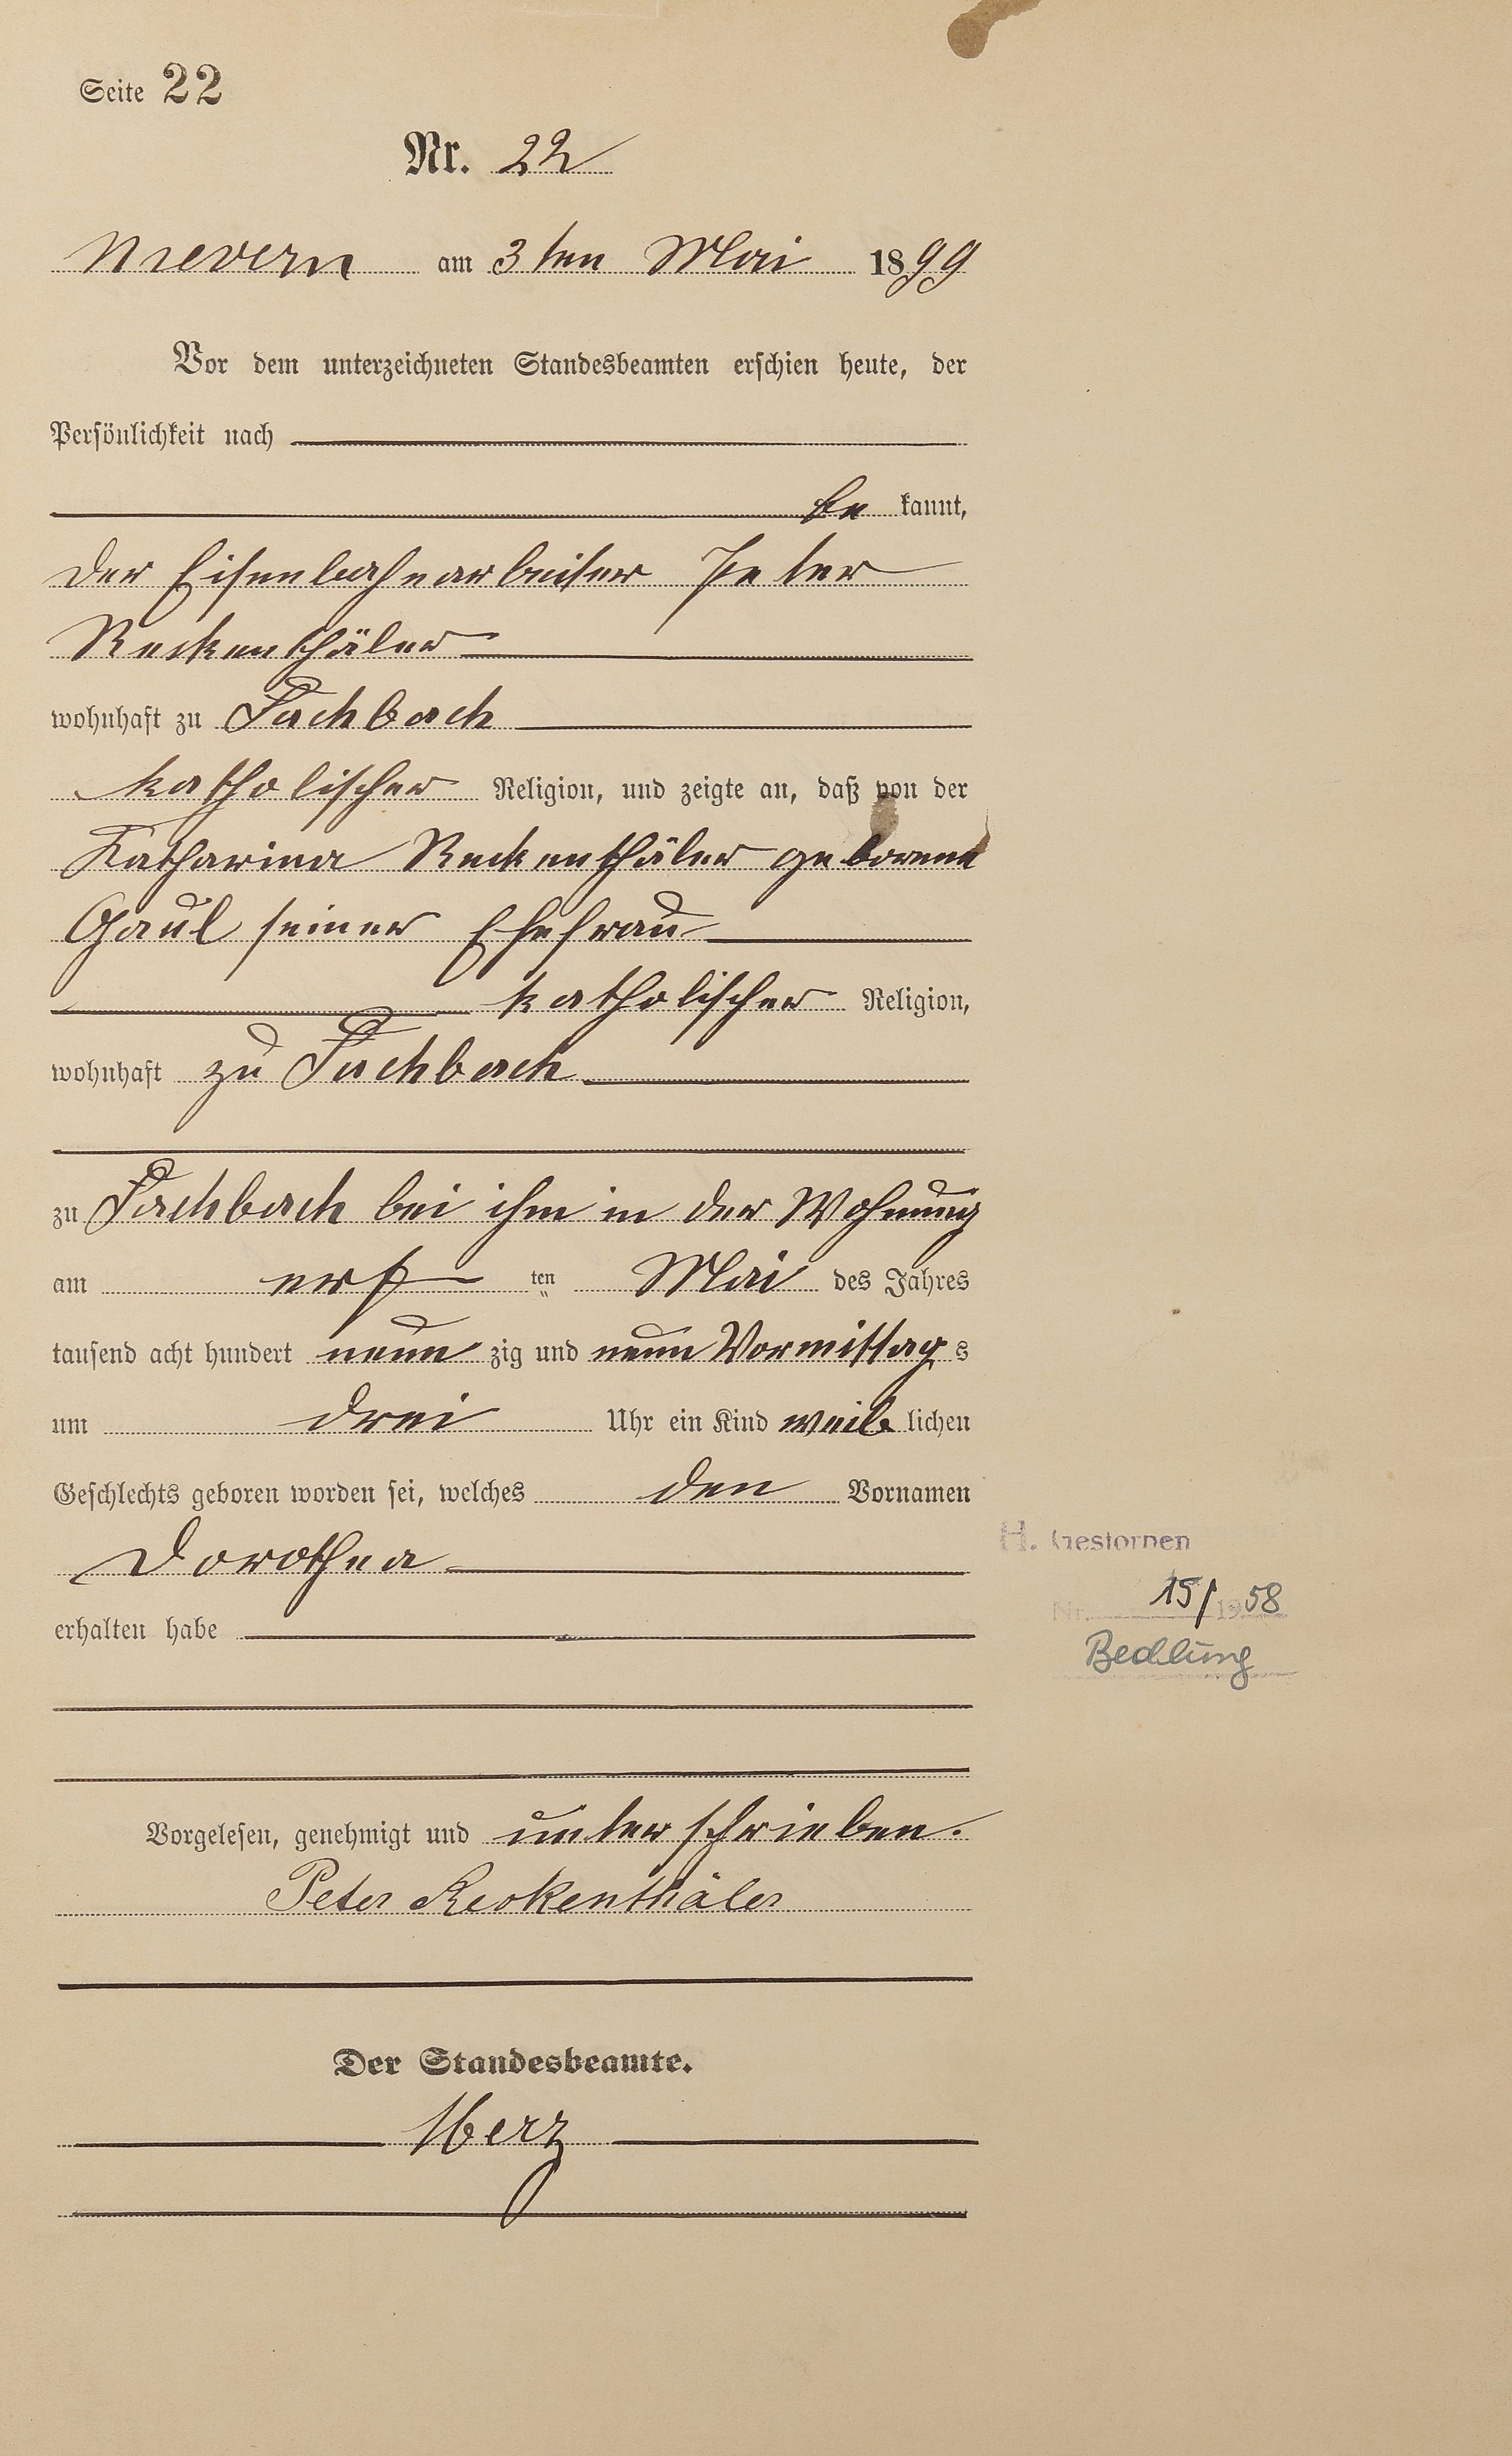 Seite 22
Nr. 22
Nievern am 3ten Mai 1899
Vor dem unterzeichneten Standesbeamten erschien heute, der
Persönlichkeit nach
be kannt,
der Eisenbahnarbeiter Peter
Reckenthäler
wohnhaft zu Fachbach
katholischer Religion, und zeigte an, daß von der
Katharina Reckenthäler geborene
Gaul seiner Ehefrau
katholischer Religion,
wohnhaft zu Fachbach
zu Fachbach bei ihm in der Wohnung
am erst ten Mai des Jahres
tausend acht hundert neun zig und neun Vormittag s
um drei Uhr ein Kind weib lichen
Geschlechts geboren worden sei, welches den Vornamen
Dorothea
erhalten habe
H. Gestorben
Nr. 15/1958
Vorgelesen, genehmigt und unterschrieben.
Peter Reckenthäler
Der Standesbeamte.
Herz